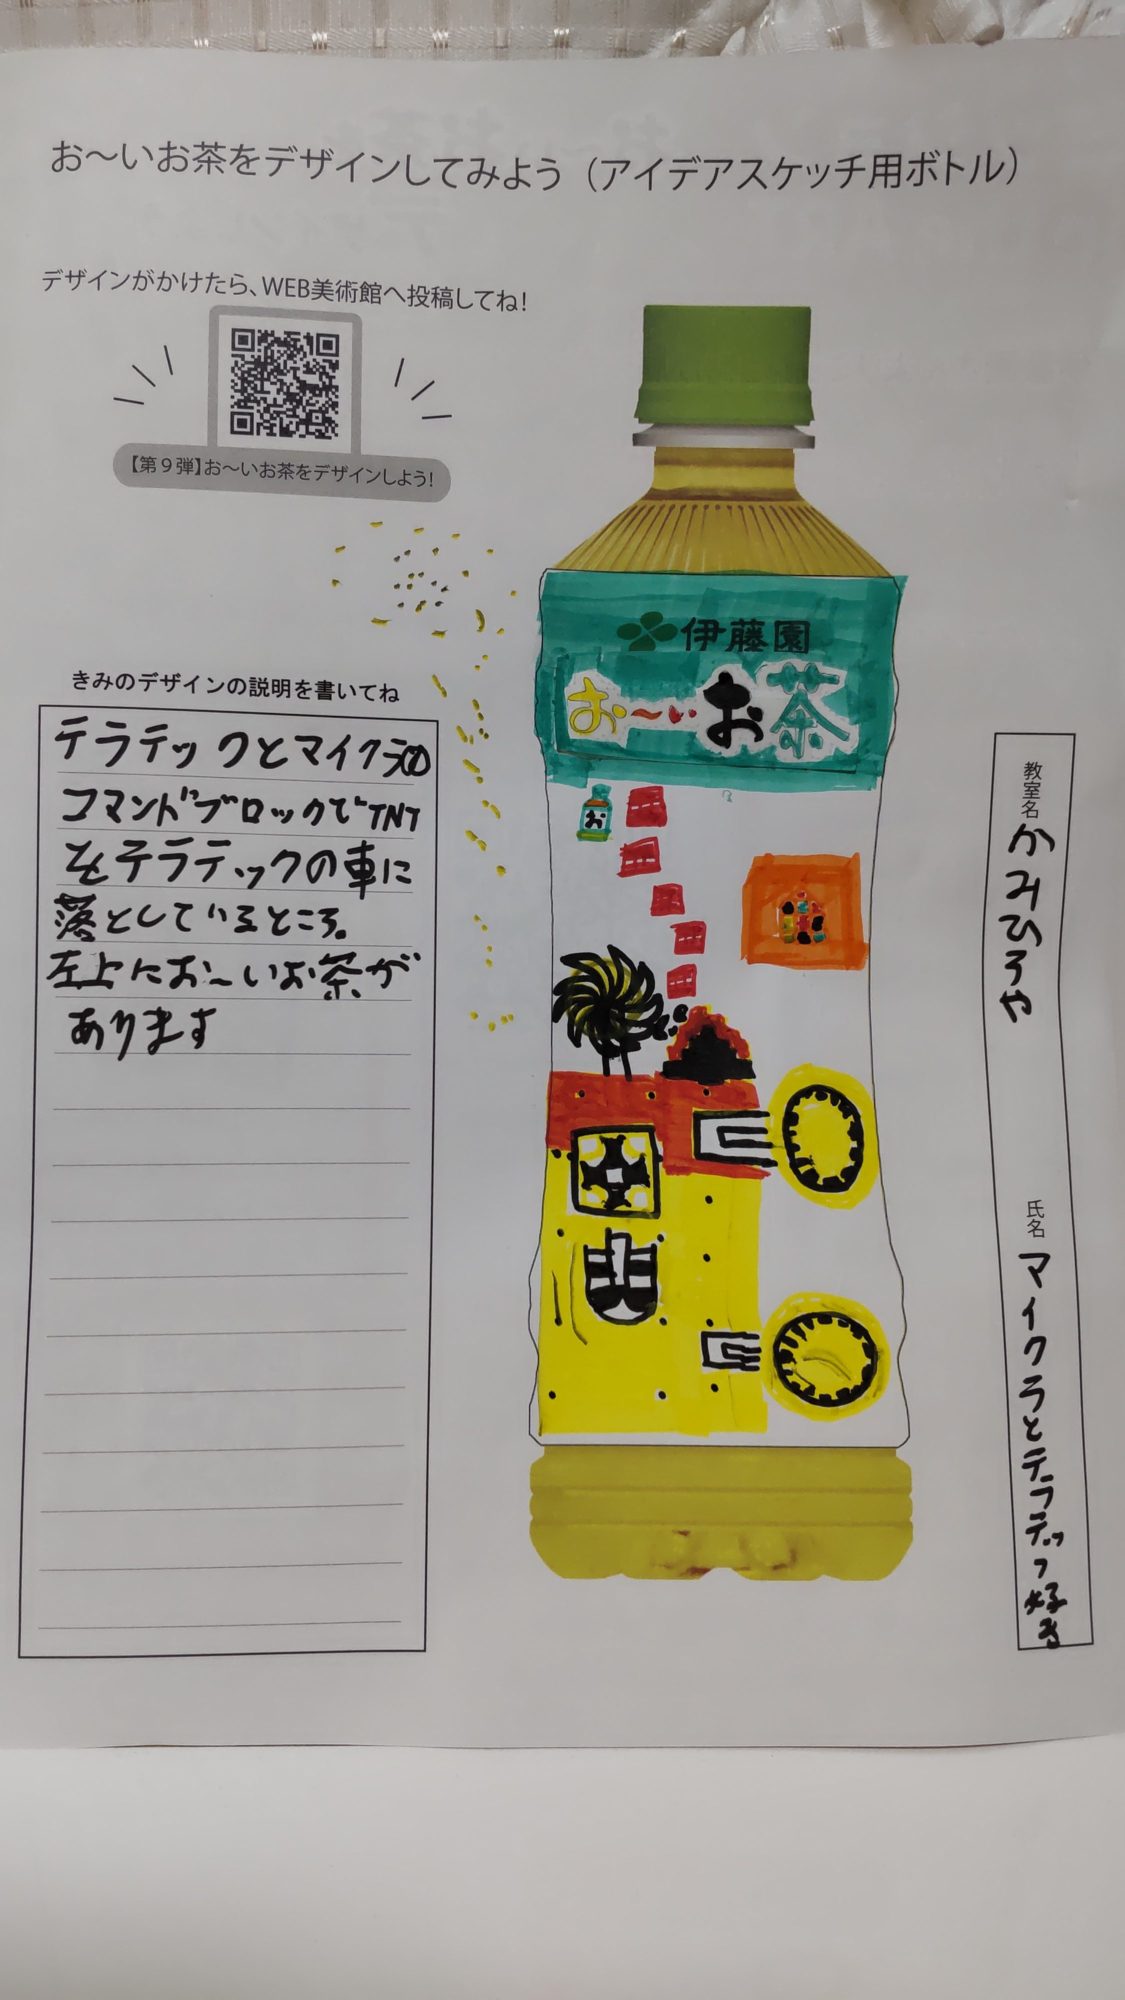 お～いお茶をデザインしてみよう（アイデアスケッチ用ボトル）
デザインがかけたら、WEB美術館へ投稿してね！
【第９弾】お～いお茶をデザインしよう！
伊藤園
お～いお茶
お
きみのデザインの説明を書いてね
テラテックとマイクラの
コマンドブロックでTNT
をテラテックの車に
落としているところ。
左上にお〜いお茶が
あります
教室名
かみひろや
氏名
マイクラとテラテック好き